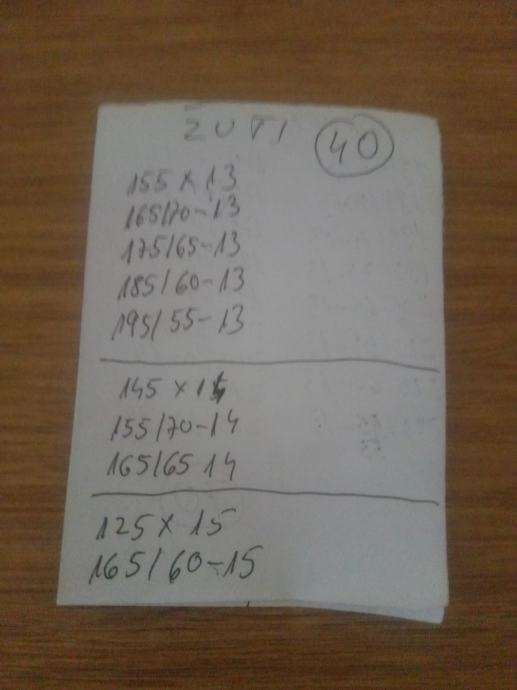 ŽUTI 40
155 x 13
165/70-13
175/65-13
185/60-13
195/55-13
145 x 14
155/70-14
165/65 14
125 x 15
165/60-15